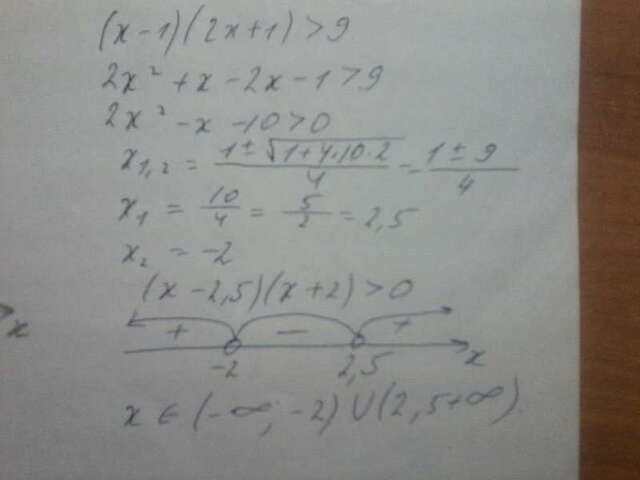 (x-1)(2x+1)>9
2x²+x-2x-1>9
2x²-x-10>0
x₁,₂ = (1±√(1+4·10·2))/4 = (1±9)/4
x₁ = 10/4 = 5/2 = 2,5
x₂ = -2
(x-2,5)(x+2)>0
+ - +
-2 2,5 x
x
x ∈ (-∞; -2) ∪ (2,5+∞)